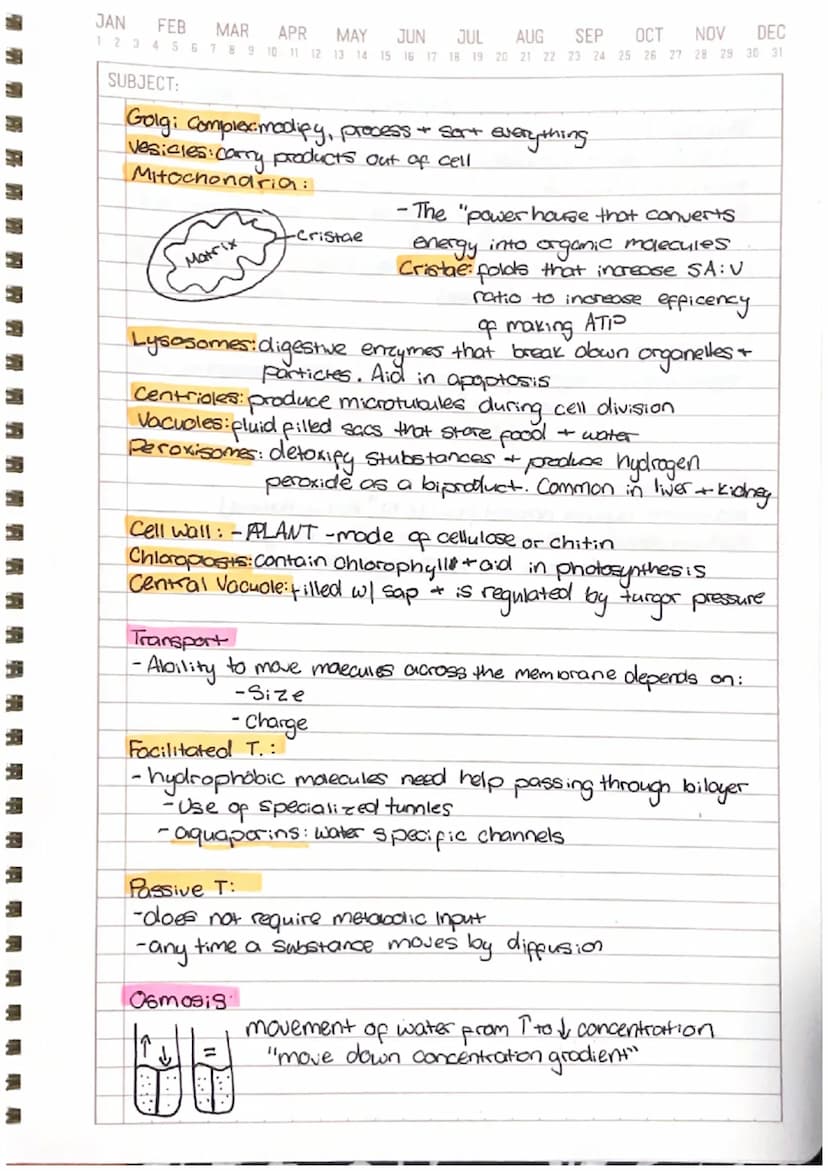 JAN FEB MAR APR MAY JUN JUL AUG SEP OCT NOV DEC
1 2 3 4 5 6 7 8 9 10 11 12 13 14 15 16 17 18 19 20 21 22 23 24 25 26 27 28 29 30 31
SUBJECT:
Golgi Complex: modify, process + sort everything
Vesicles: carry products out of cell
Mitochondria:
- The "powerhouse that converts
Matrix
cristae
energy into organic molecules
Cristae: folds that increase SA:V
ratio to increase efficency
of making ATP
Lysosomes: digestive enzymes that break down organelles +
particles. Aid in apoptosis
Centrioles: produce microtubules during cell division
Vacuoles: fluid filled sacs that store food + water
Peroxisomes: detoxify stubstances + produce hydrogen
peroxide as a biproduct. Common in liver + kidney
Cell Wall: - PLANT - made of cellulose or chitin
Chloroplasts: contain chlorophyll + aid in photosynthesis
Central Vacuole: filled w/ sap + is regulated by turgor pressure
Transport
- Ability to move molecules across the membrane depends on:
- Size
- Charge
Facilitated T.:
- hydrophobic molecules need help passing through bilayer
- Use of specialized tunnles
- aquaporins: water specific channels
Passive T:
- does not require metabolic input
- any time a substance moves by diffusion
Osmosis:
movement of water from ↑ to ↓ concentration
↑ ↓ =
"move down concentration gradient"